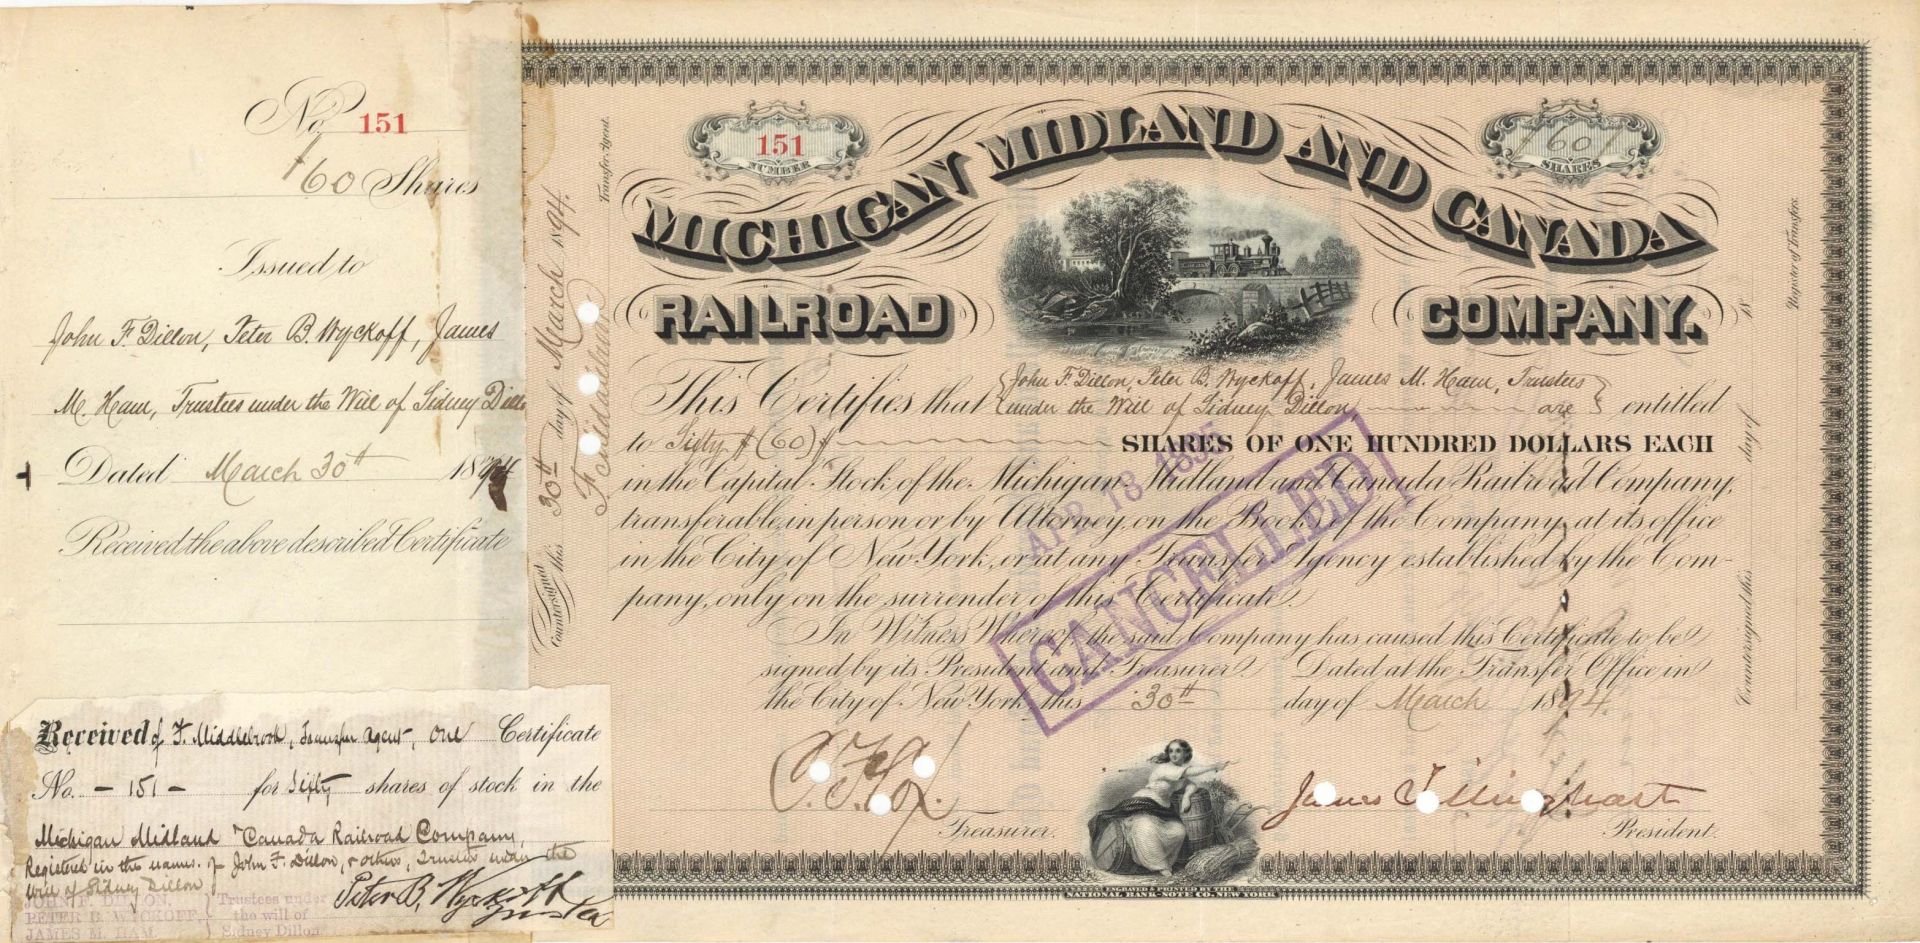 No. 151
60 Shares
Issued to
John F. Dillon, Peter B. Wyckoff, James
M. Ham, Trustees under the Will of Sidney Dillo
Dated March 30th 1894
Received the above described Certificate
Received of F. Middlebrook, Transfer Agent, One Certificate
No. - 151 - for Sixty shares of stock in the
Michigan Midland & Canada Railroad Company,
Registered in the names of John F. Dillon, & others, Trustees under the
Will of Sidney Dillon
JOHN F. DILLON,
PETER B. WYCKOFF,
JAMES M. HAM.
Trustees under
the will of
Sidney Dillon
Peter B. Wyckoff
Trustee
Countersigned this 30th day of March 1894.
Transfer Agent.
151
NUMBER
60
SHARES
MICHIGAN MIDLAND AND CANADA
RAILROAD COMPANY.
This Certifies that John F. Dillon, Peter B. Wyckoff, James M. Ham, Trustees
under the Will of Sidney Dillon, are entitled
to Sixty (60) SHARES OF ONE HUNDRED DOLLARS EACH
in the Capital Stock of the Michigan Midland and Canada Railroad Company,
transferable in person or by Attorney, on the Books of the Company, at its office
in the City of New York, or at any Transfer Agency established by the Com-
pany, only on the surrender of this Certificate.
In Witness Whereof, the said Company has caused this Certificate to be
signed by its President and Treasurer. Dated at the Transfer Office in
the City of New York, this 30th day of March 1894.
APR 18 1895
CANCELLED
C. F. Cox.
Treasurer.
James Tillinghast
President.
ENGRAVED & PRINTED BY THE
NATIONAL BANK-NOTE CO. NEW YORK
Countersigned this day of 18
Register of Transfers.